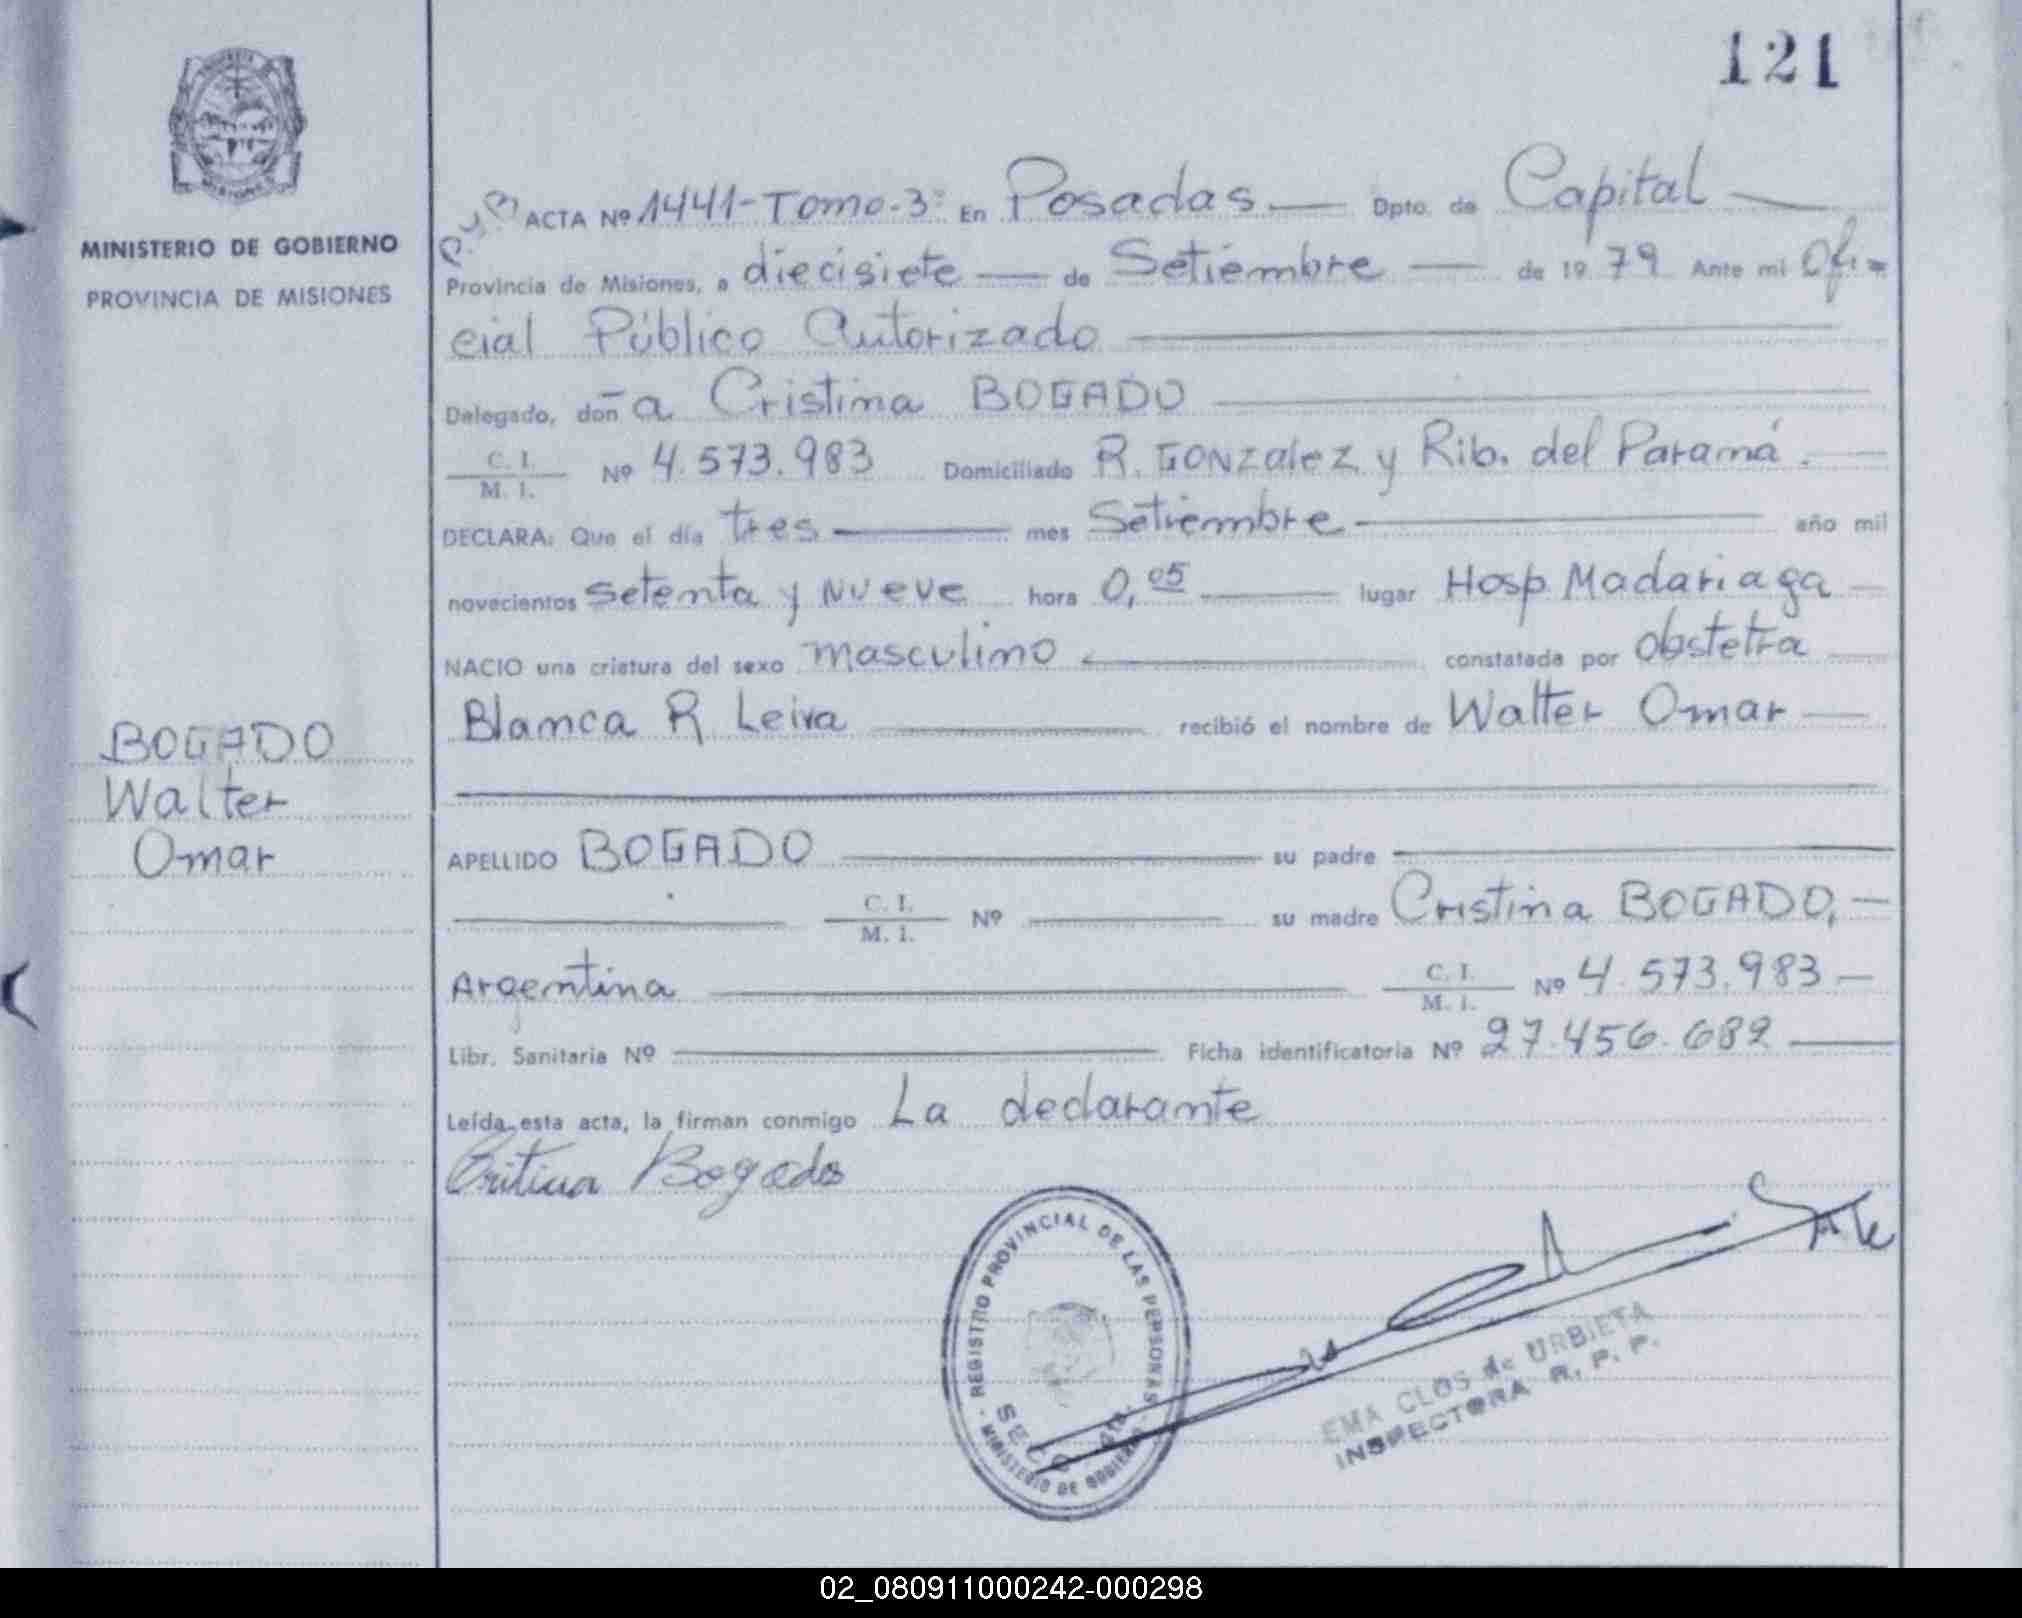 121
MINISTERIO DE GOBIERNO
PROVINCIA DE MISIONES
BOGADO
Walter
Omar
ACTA Nº 1441-Tomo-3º En Posadas — Dpto. de Capital —
Provincia de Misiones, a diecisiete — de Setiembre — de 1979 Ante mi Ofi-
cial Público Autorizado
Delegado, doña Cristina BOGADO
C. I.
M. I. Nº 4.573.983 Domiciliado R. GONZalez y Rib. del Paraná.
DECLARA: Que el día tres mes Setiembre año mil
novecientos setenta y nueve hora 0,05 lugar Hosp. Madariaga
NACIO una criatura del sexo masculino constatada por obstetra
Blanca R Leiva recibió el nombre de Walter Omar
APELLIDO BOGADO su padre
C. I.
M. I. Nº su madre Cristina BOGADO,
Argentina C. I.
M. I. Nº 4.573.983
Libr. Sanitaria Nº Ficha identificatoria Nº 27.456.682
Leída esta acta, la firman conmigo La declarante
Critina Bogado
REGISTRO PROVINCIAL DE LAS PERSONAS
MINISTERIO DE GOBIERNO
EMA CLOS de URBIETA
INSPECTORA R. P. P.
02_080911000242-000298